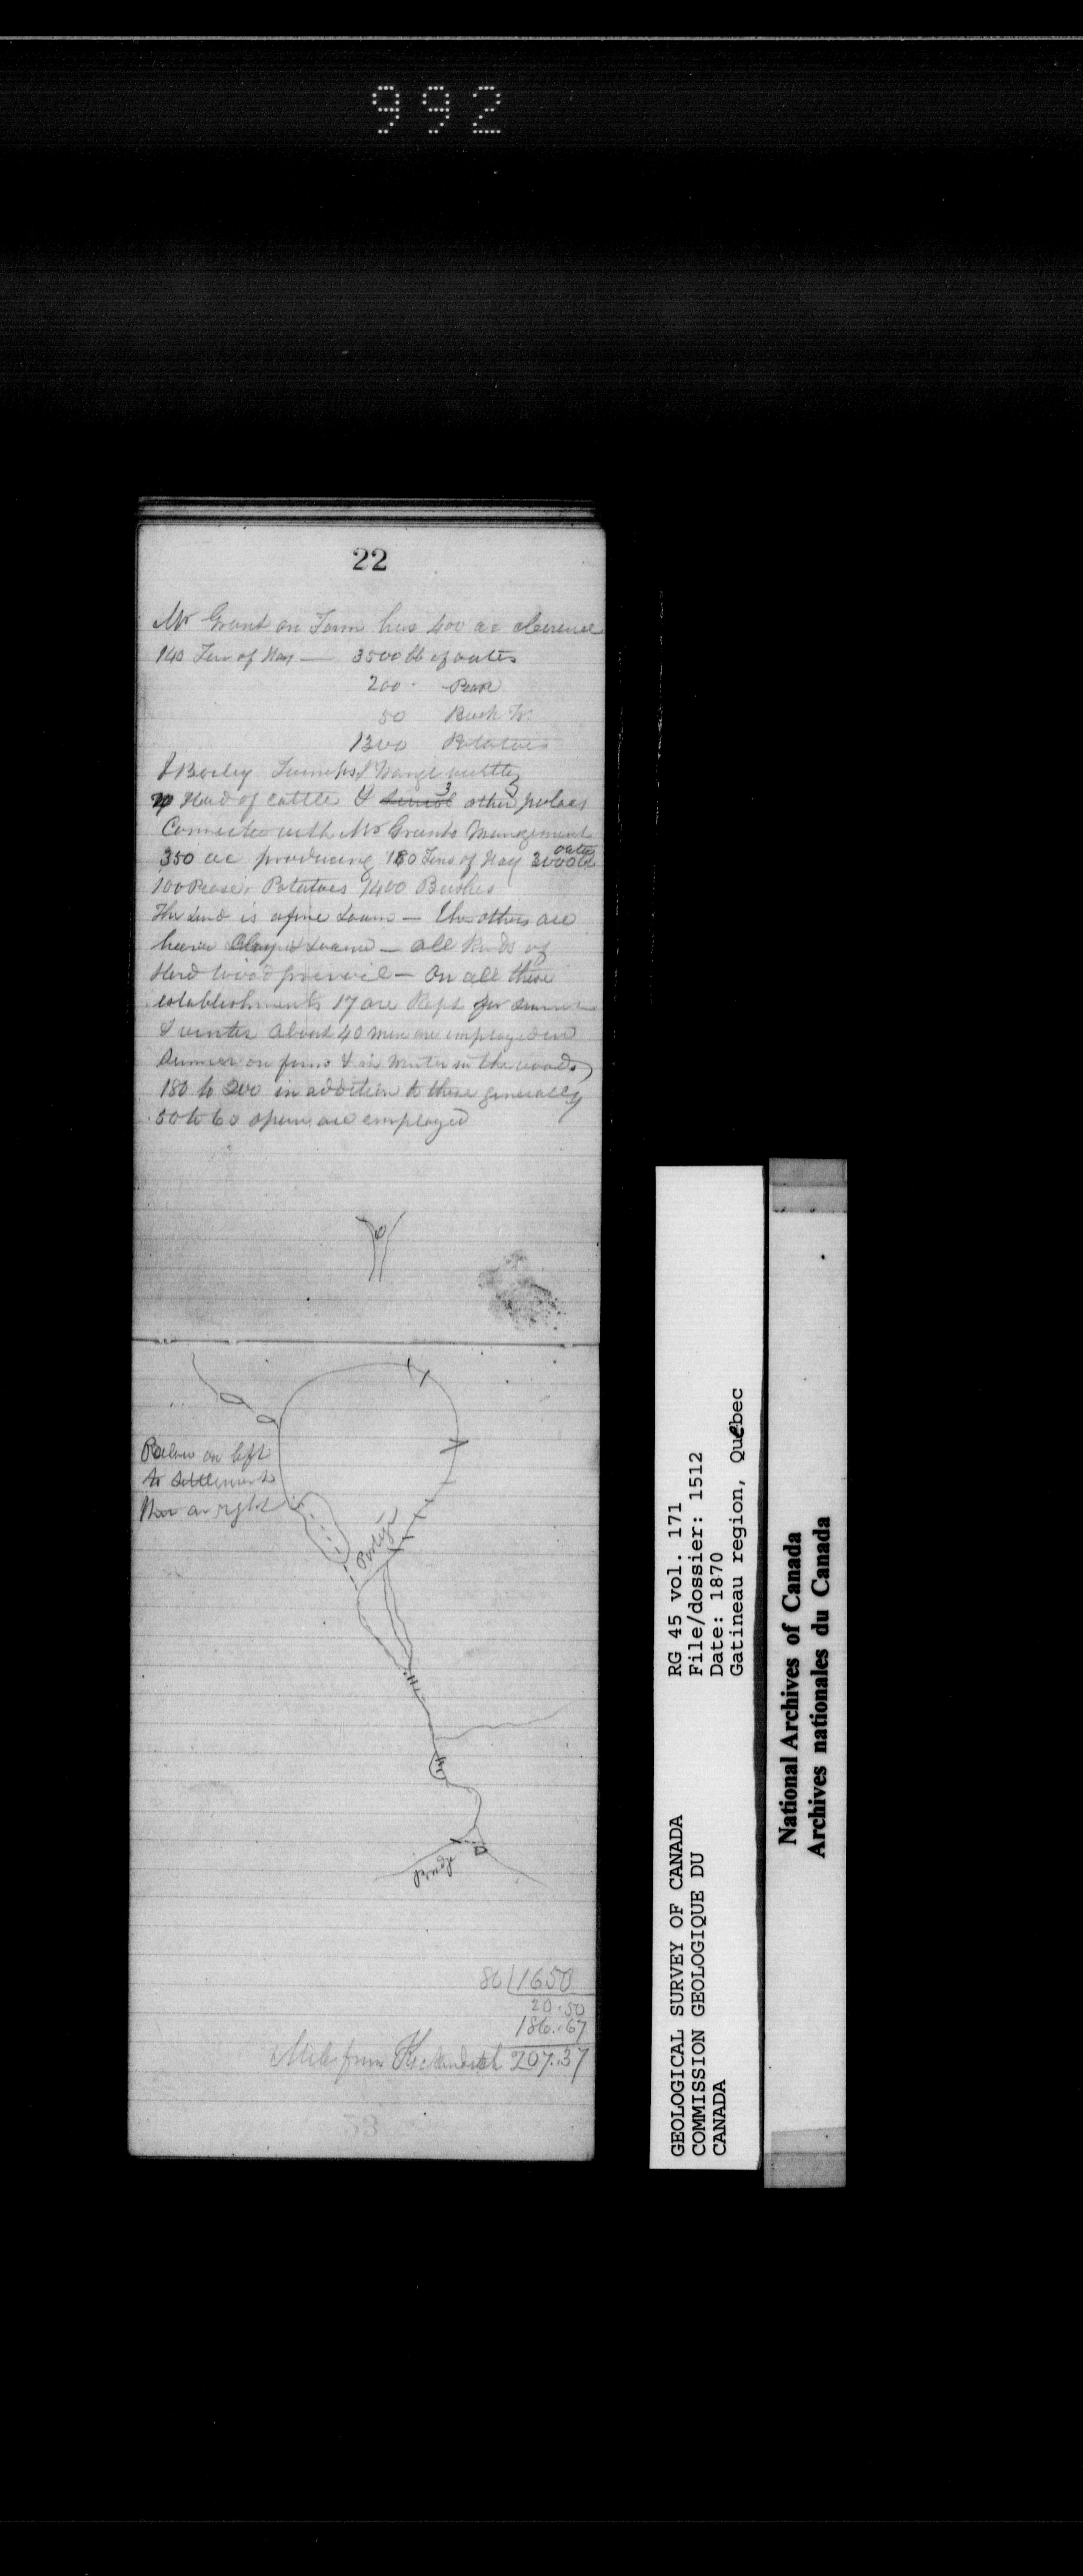 992
22
Mr Grant on Farm has 400 ac clearence
140 Tons of Hay — 3500 bb of oates
200 Pease
50 Buck W.
1300 Potatoes
& Barley Turnips &
Head of cattle & 3 other places
Connected with Mr Grants Management
350 ac producing 180 Tons of Hay 3000 oates
100 Pease. Potatoes 1400 Bushes
The Land is a fine Loam — the others are
Clay & Loame — all kinds of
Hard wood prevail — On all these
establishments 17 are Kept for summer
& winter About 40 men are employed in
Summer on farms & in Winter in the woods
180 to 200 in addition to these generally
50 to 60 are employed
Below on left
settlement
on right
Portige
80 | 1650
20.50
186.67
Mile from 207.37
GEOLOGICAL SURVEY OF CANADA
COMMISSION GEOLOGIQUE DU
CANADA
RG 45 vol. 171
File/dossier: 1512
Date: 1870
Gatineau region, Québec
National Archives of Canada
Archives nationales du Canada